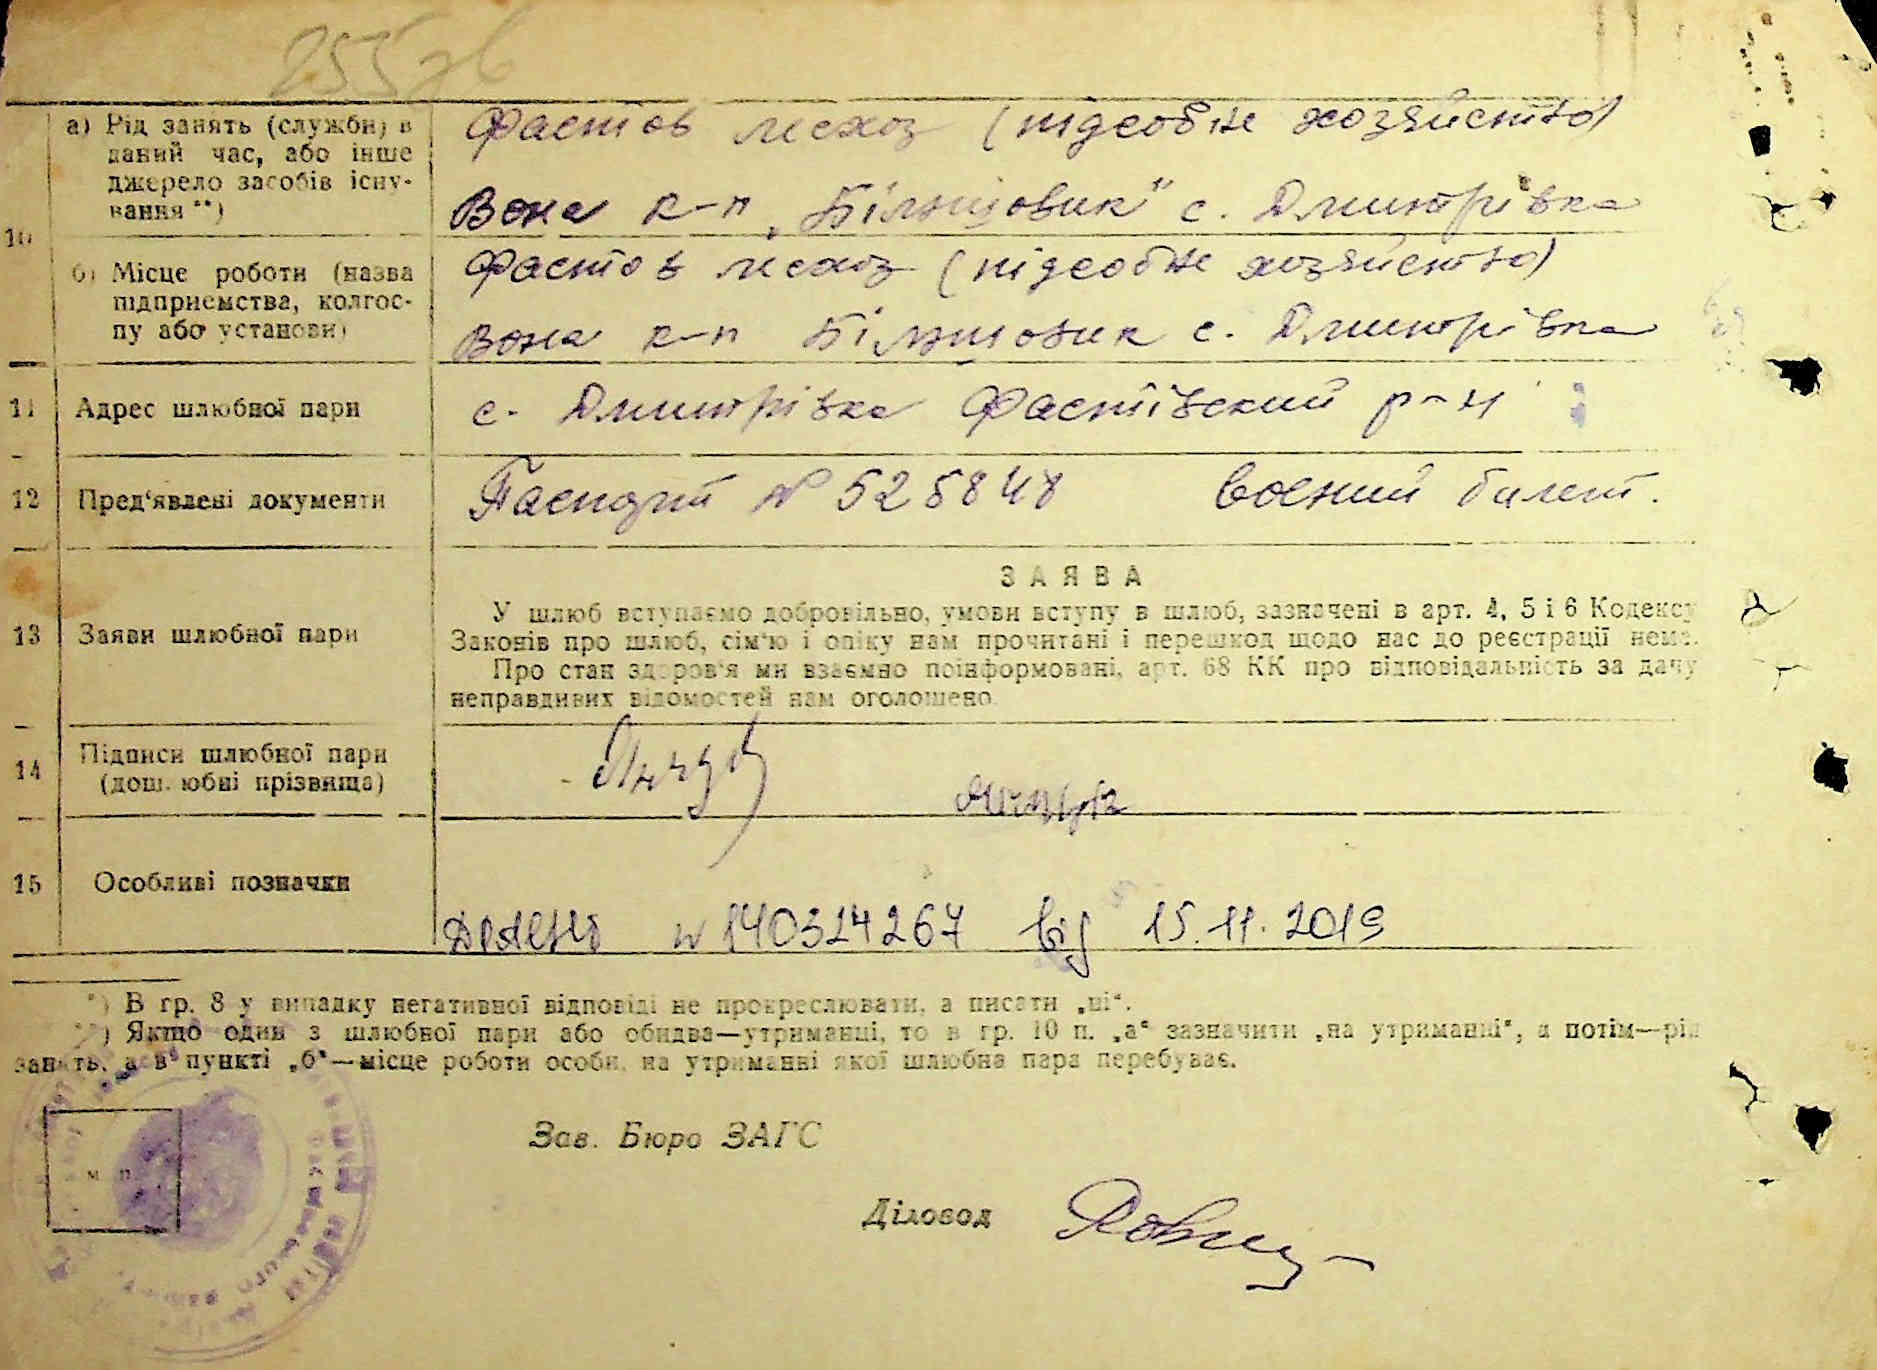 255 зв
10
а) Рід занять (служби) в
даний час, або інше
джерело засобів існу-
вання **)
Фастов лесхоз (підсобне хозяйство)
Вона к-п „Більшовик" с. Дмитрівка
б) Місце роботи (назва
підприємства, колгос-
пу або установи)
Фастов лесхоз (підсобне хозяйство)
Вона к-п Більшовик с. Дмитрівка
11 Адрес шлюбної пари
с. Дмитрівка Фастівський р-н
12 Пред'явлені документи
Паспорт № 525848 воєний билет.
13 Заяви шлюбної пари
ЗАЯВА
У шлюб вступаємо добровільно, умови вступу в шлюб, зазначені в арт. 4, 5 і 6 Кодексу
Законів про шлюб, сім'ю і опіку нам прочитані і перешкод щодо нас до реєстрації нема.
Про стан здоров'я ми взаємно поінформовані, арт. 68 КК про відповідальність за дачу
неправдивих відомостей нам оголошено.
14 Підписи шлюбної пари
(дошлюбні прізвища)
15 Особливі позначки
№ 140324267 від 15.11.2019
*) В гр. 8 у випадку негативної відповіді не прокреслювати, а писати „ні".
**) Якщо один з шлюбної пари або обидва—утриманці, то в гр. 10 п. „а" зазначити „на утриманні", а потім—рід
занять, а в пункті „б"—місце роботи особи, на утриманні якої шлюбна пара перебуває.
м п
Зав. Бюро ЗАГС
Діловод